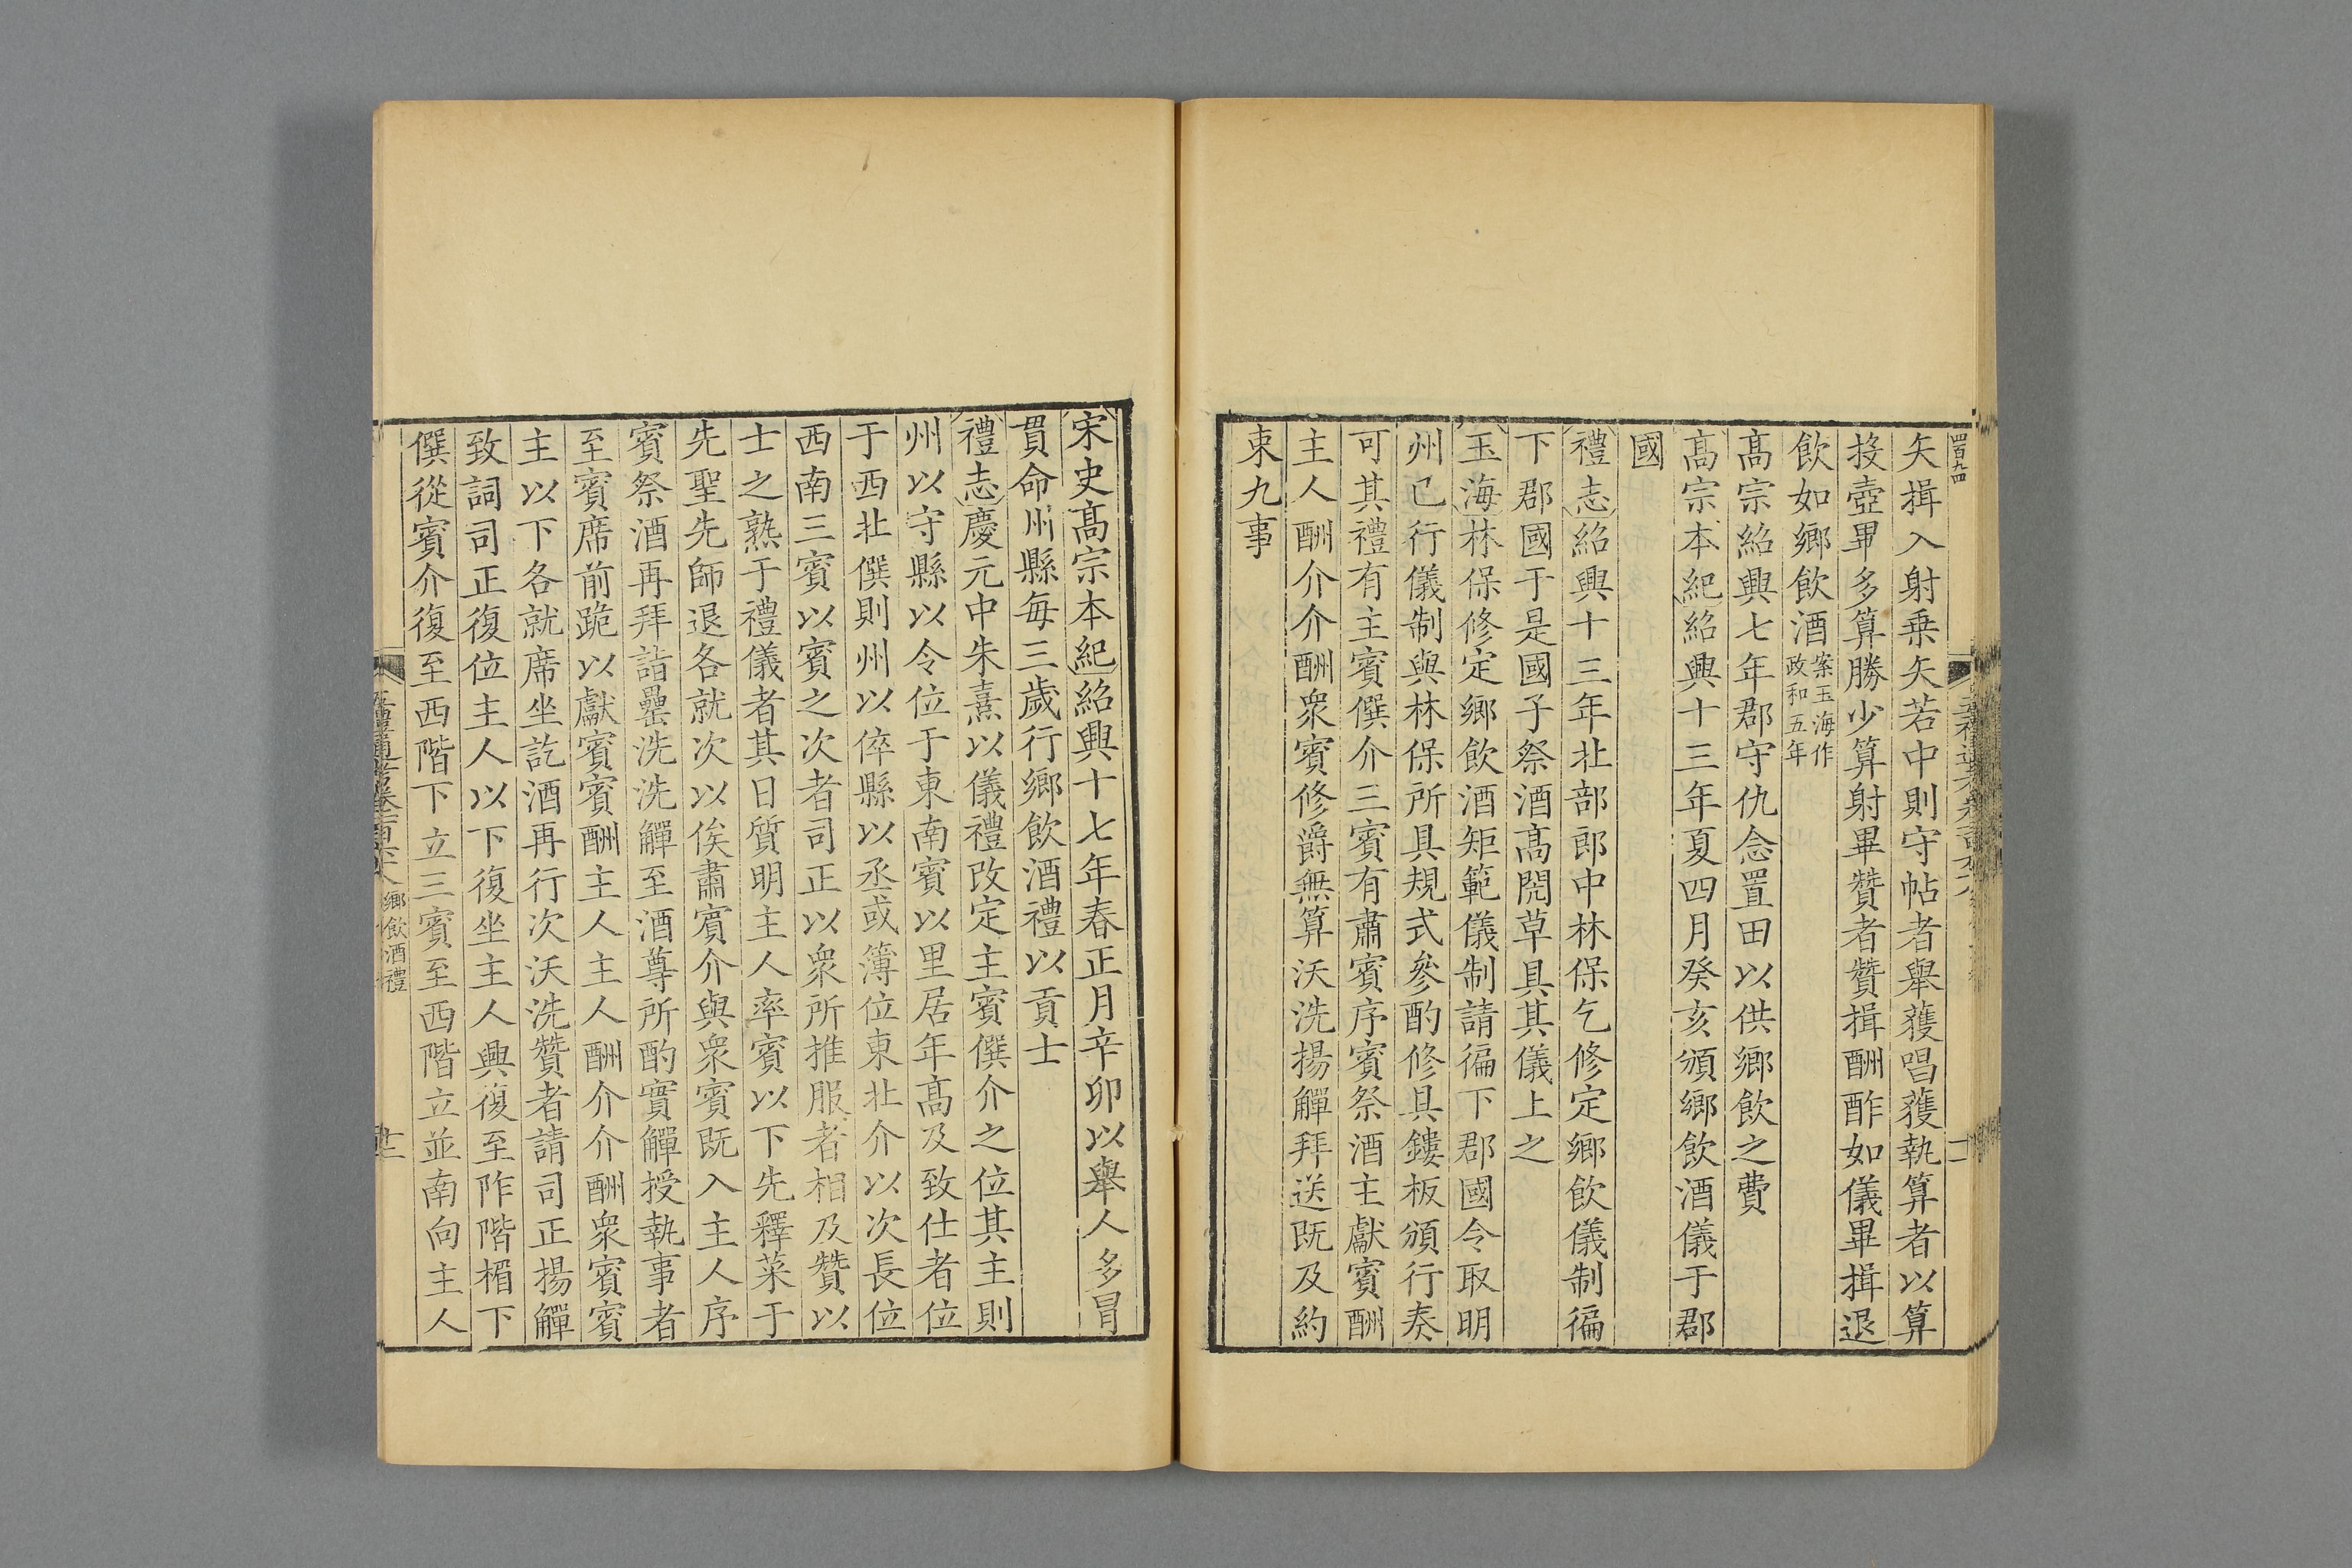 四百九四
矢揖入射乗矢若中則守帖者舉獲唱獲執算者以算
投壺畢多算勝少算射畢贊者贊揖酬酢如儀畢揖退
飲如鄉飲酒案玉海作
政和五年
髙宗紹興七年郡守仇悆置田以供鄉飲之費
髙宗本紀紹興十三年夏四月癸亥頒鄉飲酒儀于郡
國
禮志紹興十三年北部郎中林保乞修定鄉飲儀制徧
下郡國于是國子祭酒髙閌草具其儀上之
玉海林保修定鄉飲酒矩範儀制請徧下郡國令取明
州已行儀制與林保所具規式參酌修具鏤板頒行奏
可其禮有主賓僎介三賓有肅賓序賓祭酒主獻賓酬
主人酬介介酬衆賓修爵無算沃洗揚觶拜送既及約
束九事
宋史髙宗本紀紹興十七年春正月辛卯以舉人多冒
貫命州縣每三歲行鄉飲酒禮以貢士
禮志慶元中朱熹以儀禮改定主賓僎介之位其主則
州以守縣以令位于東南賓以里居年髙及致仕者位
于西北僎則州以倅縣以丞或簿位東北介以次長位
西南三賓以賓之次者司正以衆所推服者相及贊以
士之熟于禮儀者其日質明主人率賓以下先釋菜于
先聖先師退各就次以俟肅賓介與衆賓既入主人序
賓祭酒再拜詣罍洗洗觶至酒尊所酌實觶授執事者
至賓席前跪以獻賓賓酬主人主人酬介介酬衆賓賓
主以下各就席坐訖酒再行次沃洗贊者請司正揚觶
致詞司正復位主人以下復坐主人興復至阼階楣下
僎從賓介復至西階下立三賓至西階立並南向主人
五禮通考卷一百六十八 鄉飲酒禮
十二